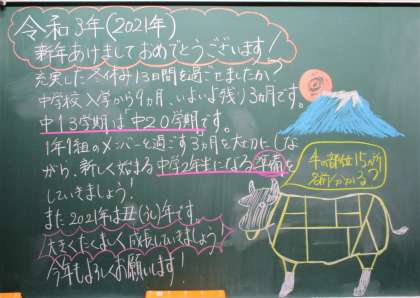 令和3年(2021年)
新年あけましておめでとうございます!
充実した冬休み13日間を過ごせましたか?
中学校入学から9ヵ月、いよいよ残り3ヵ月です。
中1 3学期は中2 0学期です。
1年9組のメンバーと過ごす3ヵ月を大切にしな
がら、新しく始まる中学2年生になる準備を
していきましょう!
また、2021年は丑(うし)年です。
大きくたくましく成長していきましょう!
今年もよろしくお願いします!
牛の部位15ヵ所
名前わかる?